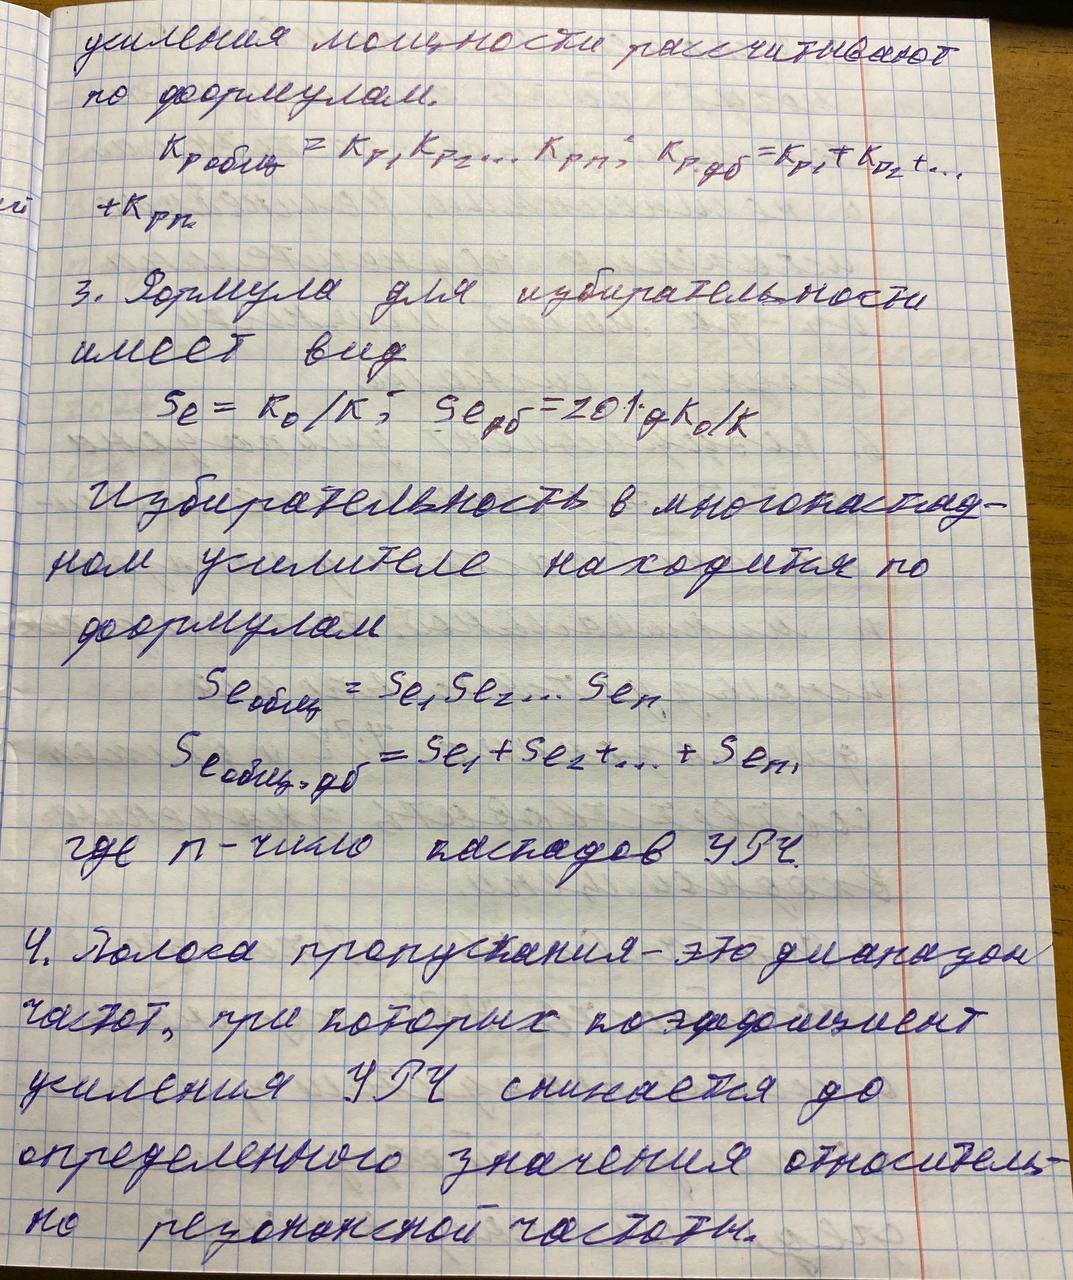 усиления мощности рассчитывают
по формулам.
Kр общ = Kр1 Kр2... Kрn; Kр.дб = Kр1 + Kр2 + ...
+ Kрn.
3. Формула для избирательности
имеет вид
Se = K0/K; Seдб = 20lgK0/K
Избирательность в многокаскад-
ном усилителе находится по
формулам
Seобщ = Se1 Se2 ... Sen
Seобщ.дб = Se1 + Se2 + ... + Sen,
где n - число каскадов УРЧ.
4. Полоса пропускания - это диапазон
частот, при которых коэффициент
усиления УРЧ снижается до
определенного значения относитель-
но резонансной частоты.